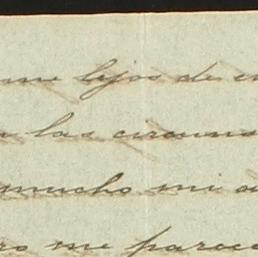 me lejos de
las circuns
mucho mi
ro me parece